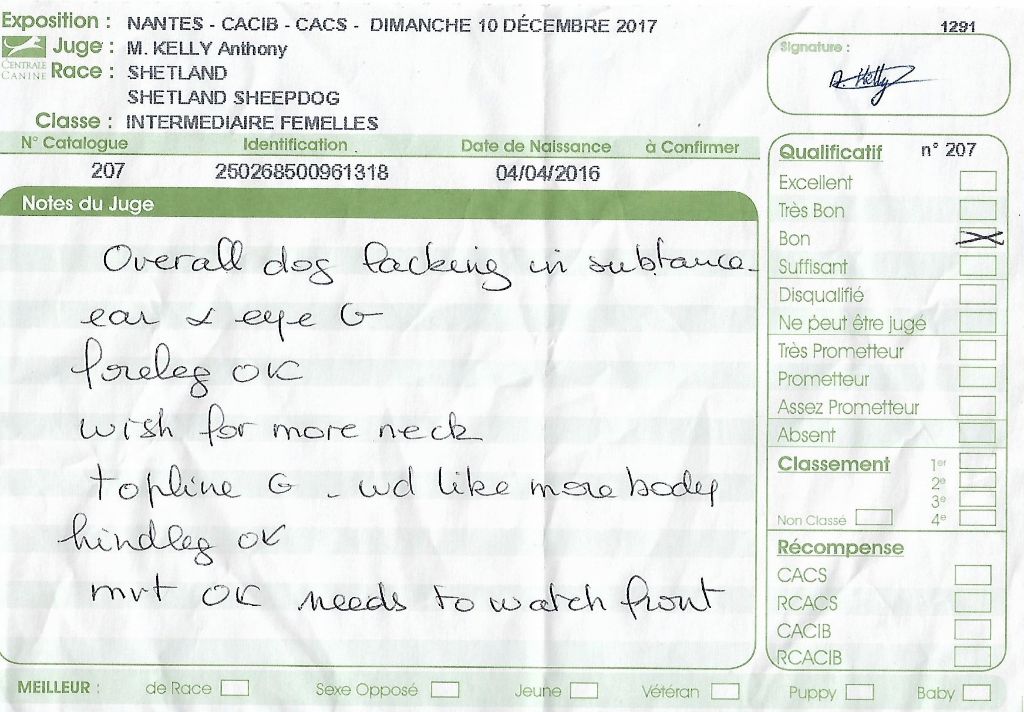 Exposition : NANTES - CACIB - CACS - DIMANCHE 10 DÉCEMBRE 2017
1291
CENTRALE CANINE
Juge : M. KELLY Anthony
Race : SHETLAND
SHETLAND SHEEPDOG
Classe : INTERMEDIAIRE FEMELLES
Signature :
A. Kelly
N° Catalogue Identification Date de Naissance à Confirmer
207 250268500961318 04/04/2016
Notes du Juge
Overall dog lacking in subtance -
ear & eye G
foreleg OK
wish for more neck
topline G - wd like more body
hindleg OK
mvt OK needs to watch front
Qualificatif n° 207
Excellent
Très Bon
Bon
Suffisant
Disqualifié
Ne peut être jugé
Très Prometteur
Prometteur
Assez Prometteur
Absent
Classement 1er
2e
3e
Non Classé 4e
Récompense
CACS
RCACS
CACIB
RCACIB
MEILLEUR : de Race Sexe Opposé Jeune Vétéran Puppy Baby